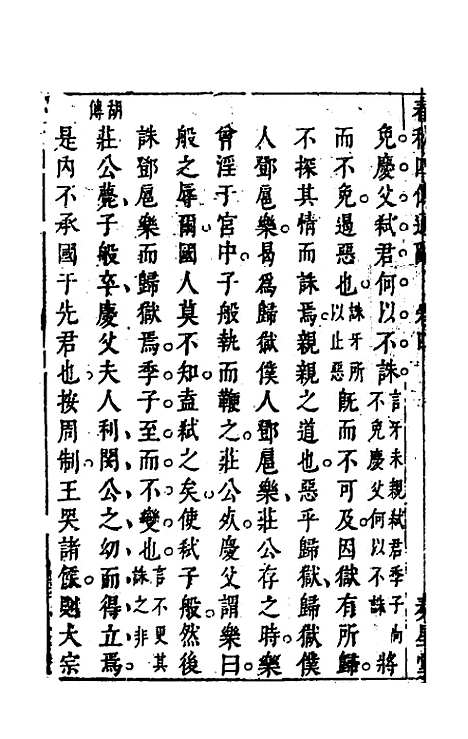 免慶父弑君何以不誅言牙未親弑君季子尚不免慶父何以不誅將
而不免遏惡也誅牙所以止惡旣而不可及因獄有所歸
不探其情而誅焉親親之道也惡乎歸獄歸獄僕
人鄧扈樂曷爲歸獄僕人鄧扈樂莊公存之時樂
曾淫于宮中子般執而鞭之莊公死慶父謂樂曰
般之辱爾國人莫不知盍弑之矣使弑子般然後
誅鄧扈樂而歸獄焉季子至而不變也言不更其誅之非
胡傳
莊公薨子般卒慶父夫人利閔公之幼而得立焉
是內不承國于先君也按周制王哭諸侯則大宗